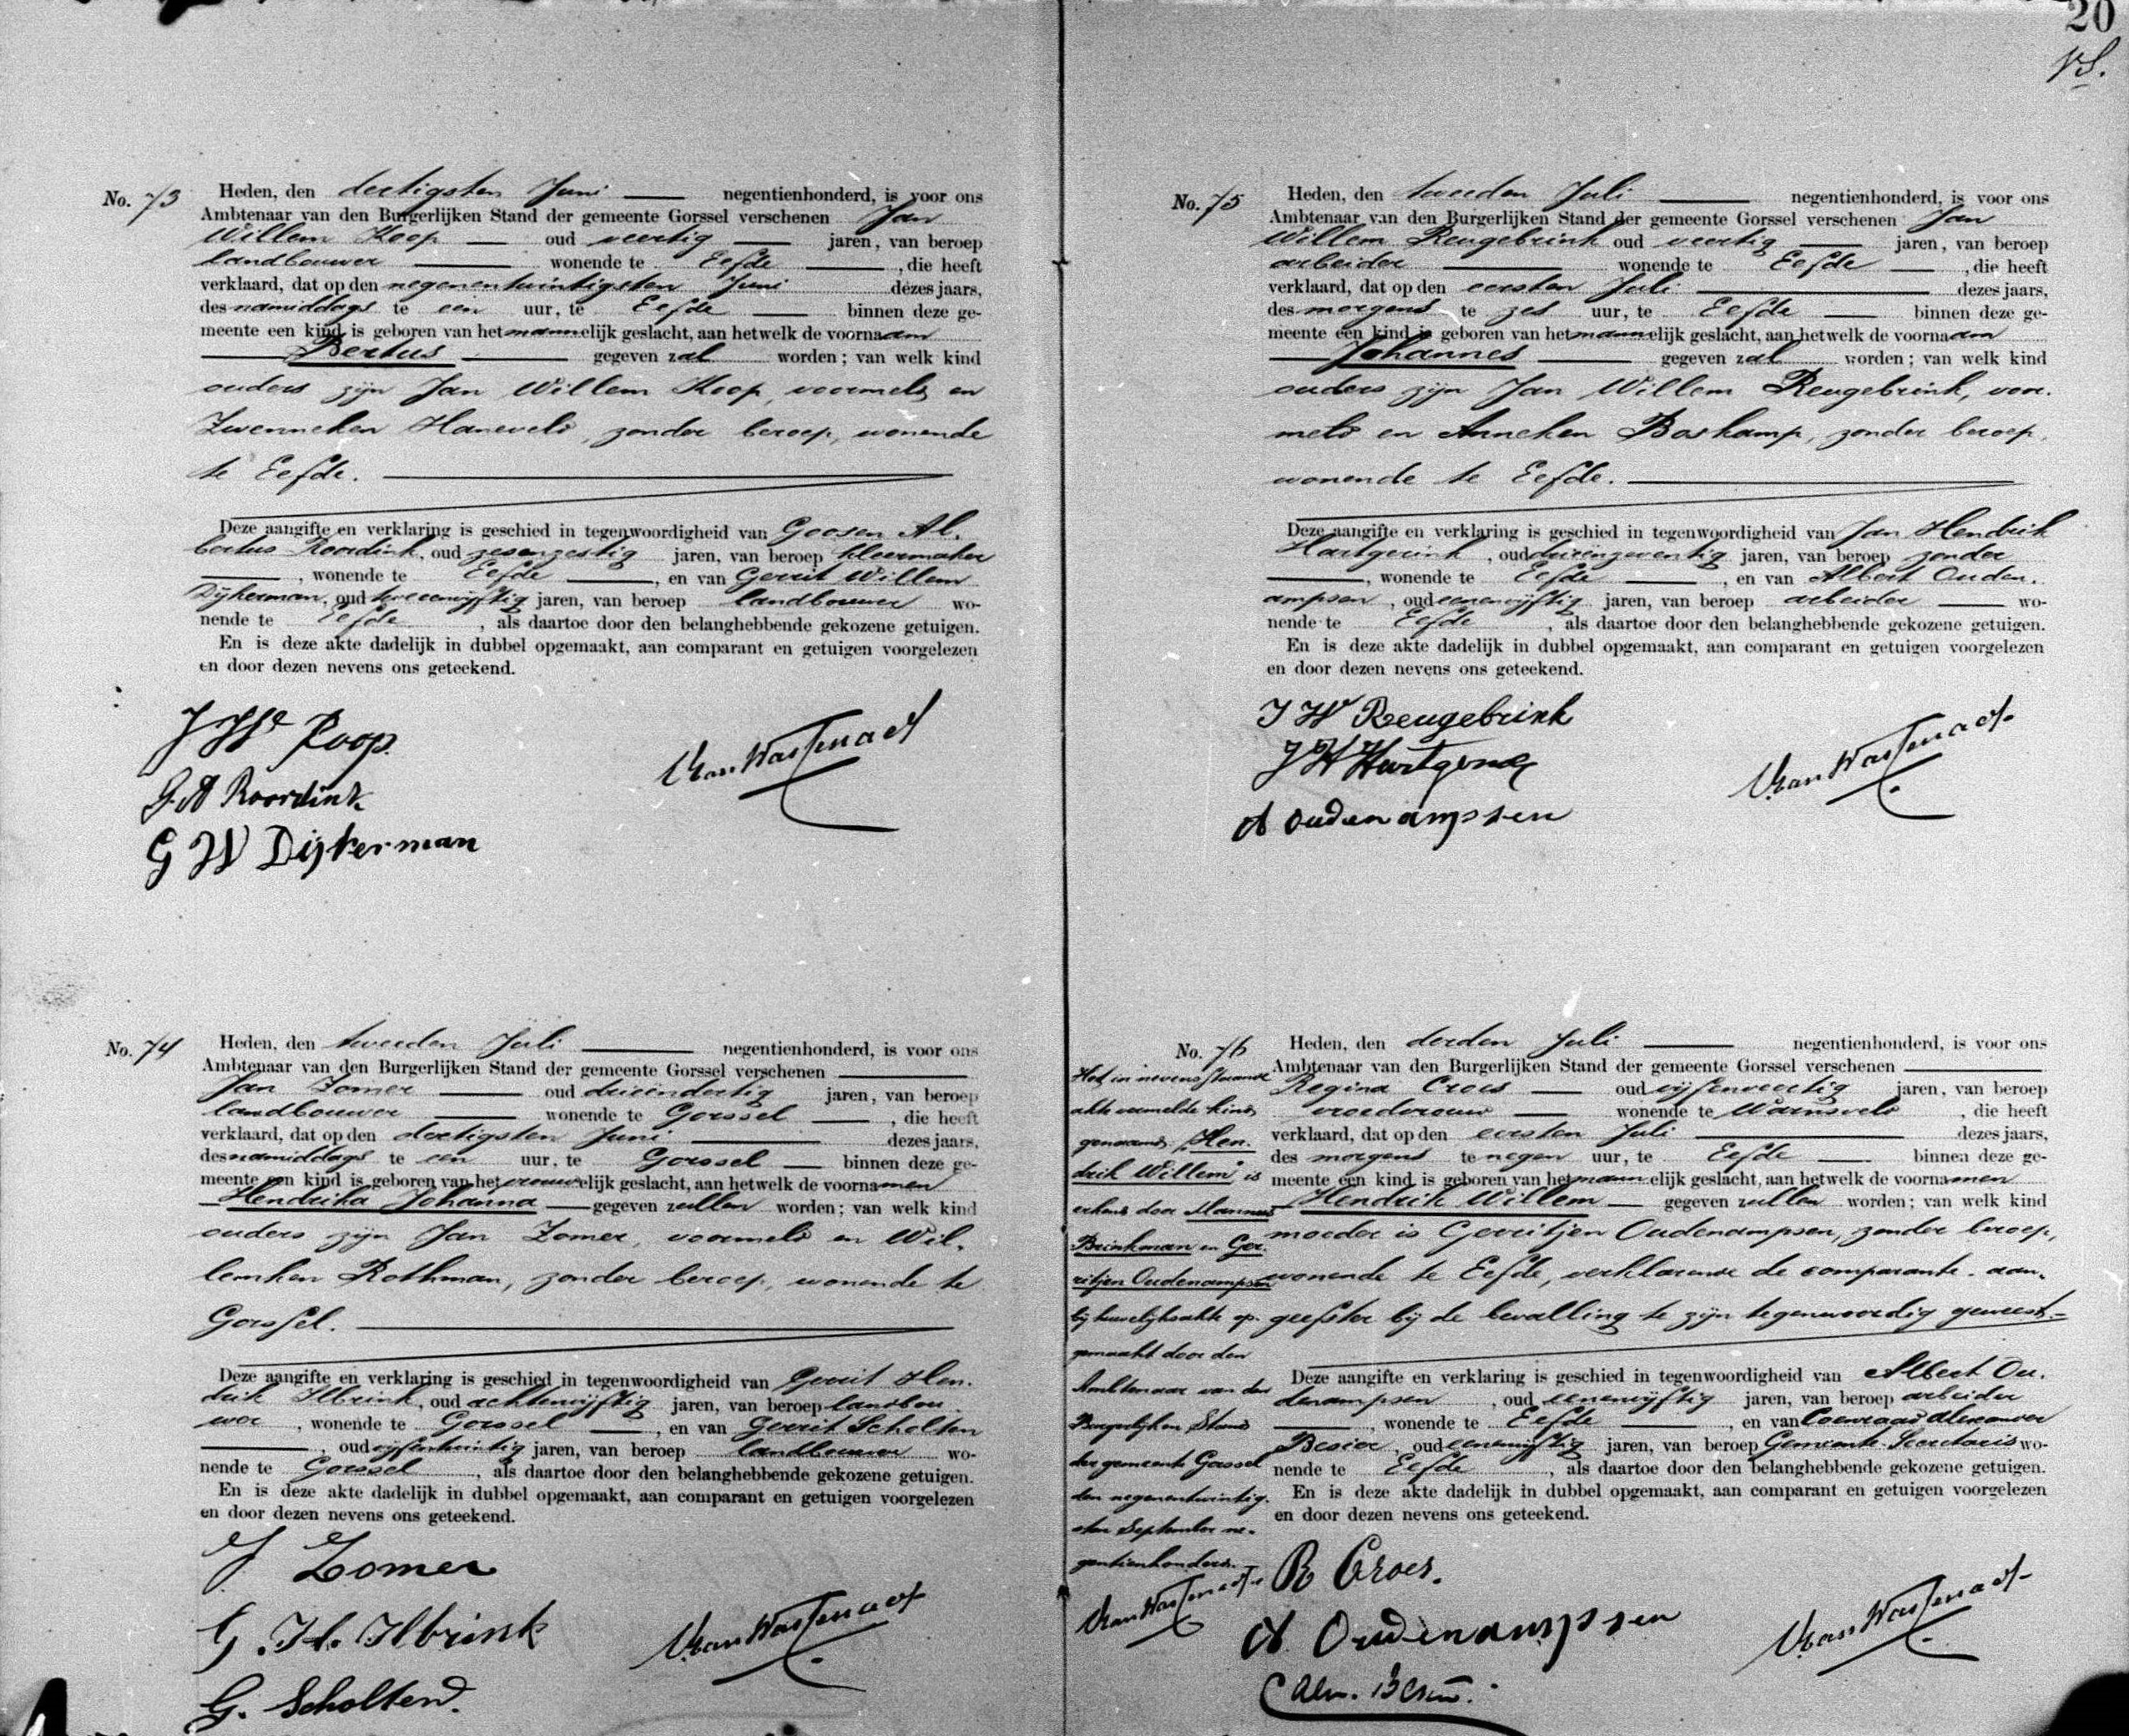 No. 73
Heden, den dertigsten Juni negentienhonderd, is voor ons
Ambtenaar van den Burgerlijken Stand der gemeente Gorssel verschenen Jan
Willem Koop oud veertig jaren, van beroep
landbouwer wonende te Eefde, die heeft
verklaard, dat op den negenentwintigsten Juni dezes jaars,
des namiddags te een uur, te Eefde binnen deze ge-
meente een kind is geboren van het mannelijk geslacht, aan hetwelk de voornaam
Bertus gegeven zal worden; van welk kind
ouders zijn Jan Willem Koop, voormeld en
Zwenneken Haneveld, zonder beroep, wonende
te Eefde.
Deze aangifte en verklaring is geschied in tegenwoordigheid van Goosen Al-
bertus Roordink, oud zesenzestig jaren, van beroep kleermaker
, wonende te Eefde, en van Gerrit Willem
Dijkerman, oud tweeenvijftig jaren, van beroep landbouwer wo-
nende te Eefde, als daartoe door den belanghebbende gekozene getuigen.
En is deze akte dadelijk in dubbel opgemaakt, aan comparant en getuigen voorgelezen
en door dezen nevens ons geteekend.
J W Koop.
G A Roordink
G W Dijkerman
van Wassenaer
No. 74
Heden, den tweeden Juli negentienhonderd, is voor ons
Ambtenaar van den Burgerlijken Stand der gemeente Gorssel verschenen
Jan Zomer oud drieëndertig jaren, van beroep
landbouwer wonende te Gorssel, die heeft
verklaard, dat op den dertigsten Juni dezes jaars,
des namiddags te een uur, te Gorssel binnen deze ge-
meente een kind is geboren van het vrouwelijk geslacht, aan hetwelk de voornamen
Hendrika Johanna gegeven zullen worden; van welk kind
ouders zijn Jan Zomer, voormeld en Wil-
lemken Rothman, zonder beroep, wonende te
Gorssel.
Deze aangifte en verklaring is geschied in tegenwoordigheid van Gerrit Hen-
drik Ilbrink, oud achtenvijftig jaren, van beroep landbou-
wer, wonende te Gorssel, en van Gerrit Scholten
, oud vijfentwintig jaren, van beroep landbouwer wo-
nende te Gorssel, als daartoe door den belanghebbende gekozene getuigen.
En is deze akte dadelijk in dubbel opgemaakt, aan comparant en getuigen voorgelezen
en door dezen nevens ons geteekend.
J Zomer
G. H. Ilbrink
G. Scholten
van Wassenaer
20
No. 75
Heden, den tweeden Juli negentienhonderd, is voor ons
Ambtenaar van den Burgerlijken Stand der gemeente Gorssel verschenen Jan
Willem Reugebrink oud veertig jaren, van beroep
arbeider wonende te Eefde, die heeft
verklaard, dat op den eersten Juli dezes jaars,
des morgens te zes uur, te Eefde binnen deze ge-
meente een kind is geboren van het mannelijk geslacht, aan hetwelk de voornaam
Johannes gegeven zal worden; van welk kind
ouders zijn Jan Willem Reugebrink, voor-
meld en Anneken Boskamp, zonder beroep,
wonende te Eefde.
Deze aangifte en verklaring is geschied in tegenwoordigheid van Jan Hendrik
Hartgerink, oud drieënzeventig jaren, van beroep zonder
, wonende te Eefde, en van Albert Ouden-
ampsen, oud eenenvijftig jaren, van beroep arbeider wo-
nende te Eefde, als daartoe door den belanghebbende gekozene getuigen.
En is deze akte dadelijk in dubbel opgemaakt, aan comparant en getuigen voorgelezen
en door dezen nevens ons geteekend.
J W Reugebrink
J H Hartgerink
A Oudenampsen
van Wassenaer
No. 76
Heden, den derden Juli negentienhonderd, is voor ons
Ambtenaar van den Burgerlijken Stand der gemeente Gorssel verschenen
Regina Croes oud vijfenveertig jaren, van beroep
vroedvrouw wonende te Warnsveld, die heeft
verklaard, dat op den eersten Juli dezes jaars,
des morgens te negen uur, te Eefde binnen deze ge-
meente een kind is geboren van het mannelijk geslacht, aan hetwelk de voornamen
Hendrik Willem gegeven zullen worden; van welk kind
moeder is Gerritjen Oudenampsen, zonder beroep,
wonende te Eefde, verklarende de comparante-aan-
geefster bij de bevalling te zijn tegenwoordig geweest.
Deze aangifte en verklaring is geschied in tegenwoordigheid van Albert Ou-
denampsen, oud eenenvijftig jaren, van beroep arbeider
, wonende te Eefde, en van Coenraad Alexander
Besier, oud eenenvijftig jaren, van beroep Gemeente-Secretaris wo-
nende te Eefde, als daartoe door den belanghebbende gekozene getuigen.
En is deze akte dadelijk in dubbel opgemaakt, aan comparant en getuigen voorgelezen
en door dezen nevens ons geteekend.
Het in nevenstaande
akte vermelde kind
genaamd "Hen-
drik Willem" is
erkend door Mannes
Brinkman en Ger-
ritjen Oudenampsen
bij huwelijksakte op-
gemaakt door den
Ambtenaar van den
Burgerlijken Stand
der gemeente Gorssel
den negenentwintig-
sten September ne-
gentienhonderd.
van Wassenaer
R Croes.
A. Oudenampsen
C Alex. Besier.
van Wassenaer